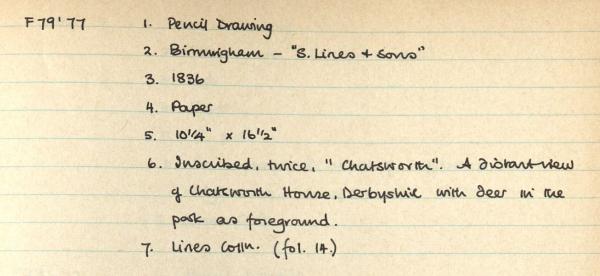 F79'77 1. Pencil Drawing
2. Birmingham - "S. Lines + Sons"
3. 1836
4. Paper
5. 10 1/4" x 16 1/2"
6. Inscribed, twice, "Chatsworth". A distant view
of Chatsworth House, Derbyshire with deer in the
park as foreground.
7. Lines Colln. (fol. 14.)